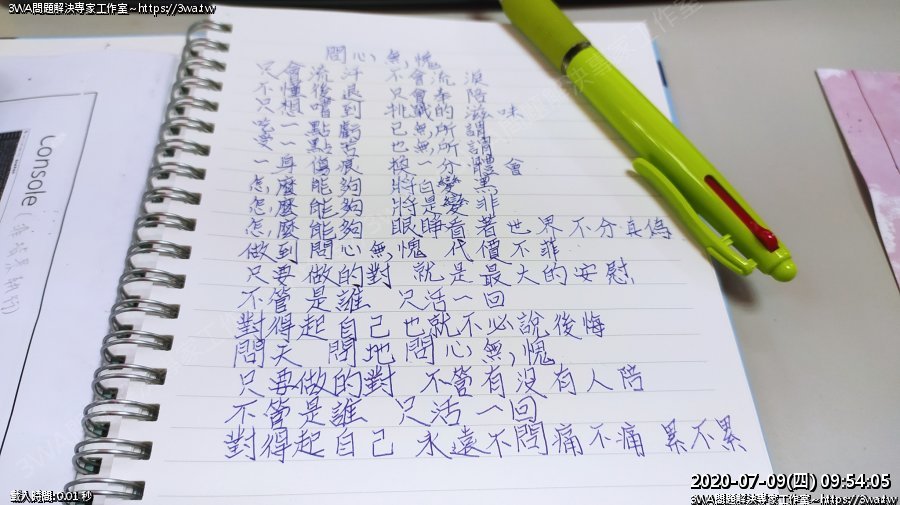 3WA問題解決專家工作室~https://3wa.tw
問心無愧
只會流汗 不會流淚
不懂後退 只會奉陪
只想嚐到 挑戰的滋味
吃一點虧 已無所謂
受一點苦 也無所謂
一身傷痕 換一分體會
怎麼能夠 將白變黑
怎麼能夠 將是變非
怎麼能夠 眼睜看著世界不分真偽
做到問心無愧 代價不菲
只要做的對 就是最大的安慰
不管是誰 只活一回
對得起自己也就不必說後悔
問天 問地問心無愧
只要做的對 不管有沒有人陪
不管是誰 只活一回
對得起自己 永遠不問痛不痛 累不累
Console
載入時間:0.01 秒
2020-07-09(四) 09:54:05
3WA問題解決專家工作室~https://3wa.tw